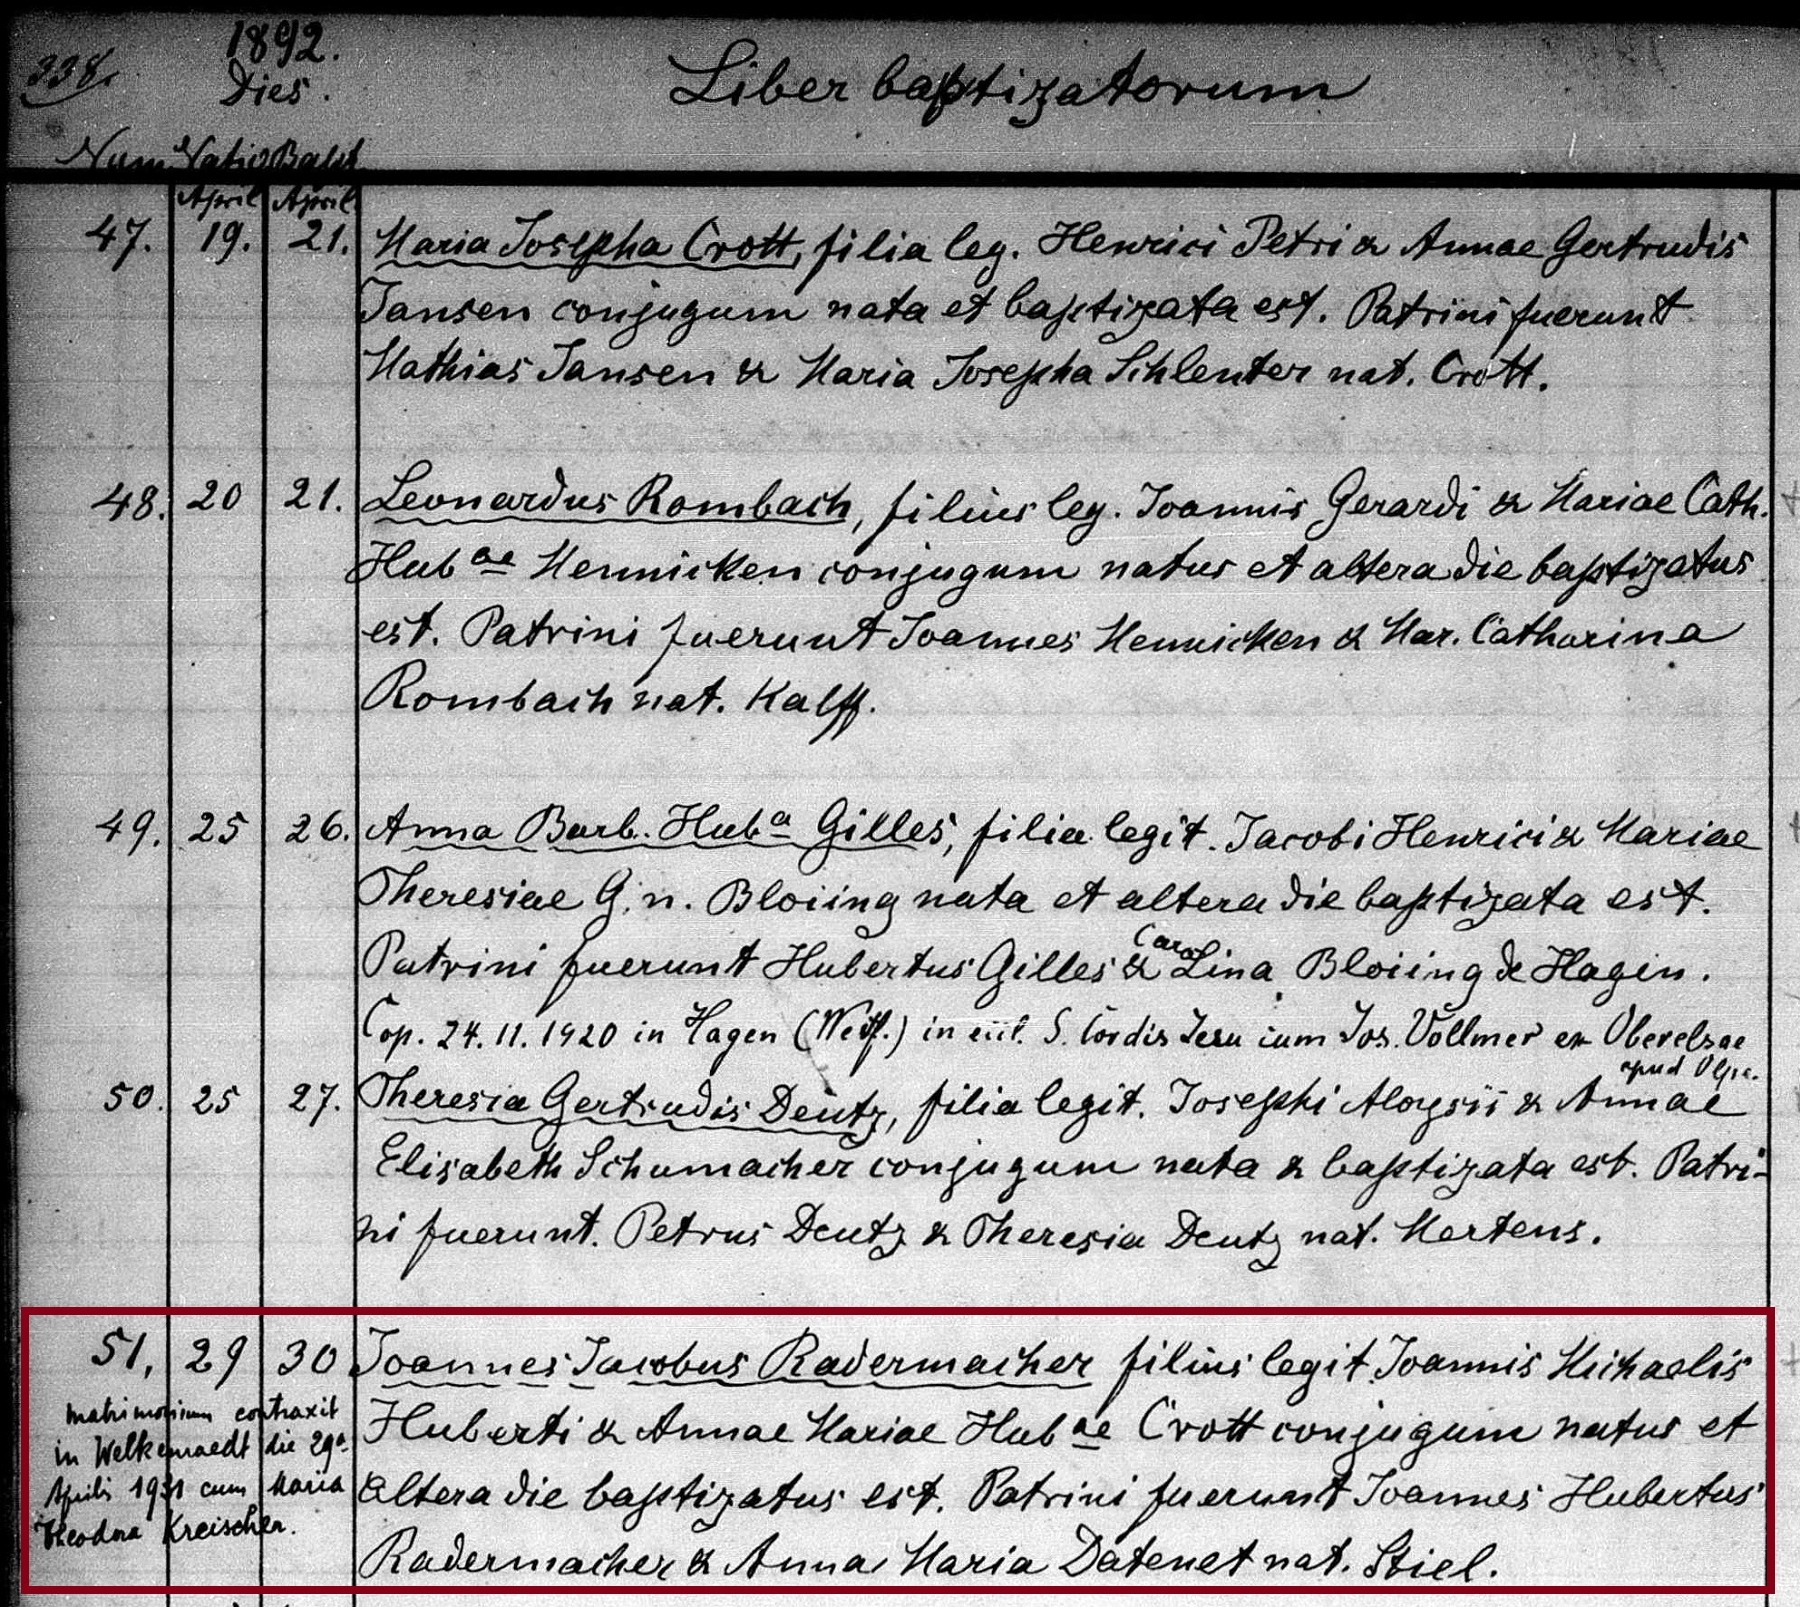 338.
1892.
Dies.
Liber baptizatorum
Num Nativ Bapt
April April
47. 19. 21. Maria Josepha Crott, filia leg. Henrici Petri & Annae Gertrudis
Jansen conjugum nata et baptizata est. Patrini fuerunt
Mathias Jansen & Maria Josepha Schlenter nat. Crott.
48. 20 21. Leonardus Rombach, filius leg. Joannis Gerardi & Mariae Cath.
Hubae Hennicken conjugum natus et altera die baptizatus
est. Patrini fuerunt Joannes Hennicken & Mar. Catharina
Rombach nat. Kalff.
49. 25 26. Anna Barb. Huba Gilles, filia legit. Jacobi Henrici & Mariae
Theresiae G. n. Bloiing nata et altera die baptizata est.
Patrini fuerunt Hubertus Gilles & Carolina Bloiing de Hagen.
Cop. 24. 11. 1920 in Hagen (Westf.) in eccl. S. Cordis Jesu cum Jos. Vollmer ex Oberelspe
apud Olpe.
50. 25 27. Theresia Gertrudis Deutz, filia legit. Josephi Aloysii & Annae
Elisabeth Schumacher conjugum nata & baptizata est. Patri-
ni fuerunt. Petrus Deutz & Theresia Deutz nat. Mertens.
51, 29 30 Joannes Jacobus Radermacher filius legit. Joannis Michaelis
Huberti & Annae Mariae Hubae Crott conjugum natus et
altera die baptizatus est. Patrini fuerunt Joannes Hubertus
Radermacher & Anna Maria Datenet nat. Stiel.
matrimonium contraxit
in Welkenraedt die 29a
Aprilis 1931 cum Maria
Theodora Kreischer.